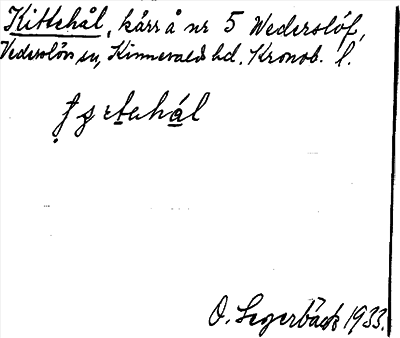 Kittehål, kärr å nr 5 Wederslöf,
Vederslövs sn, Kinnevalds hd. Kronob. l.
O. Segerbäck 1933.